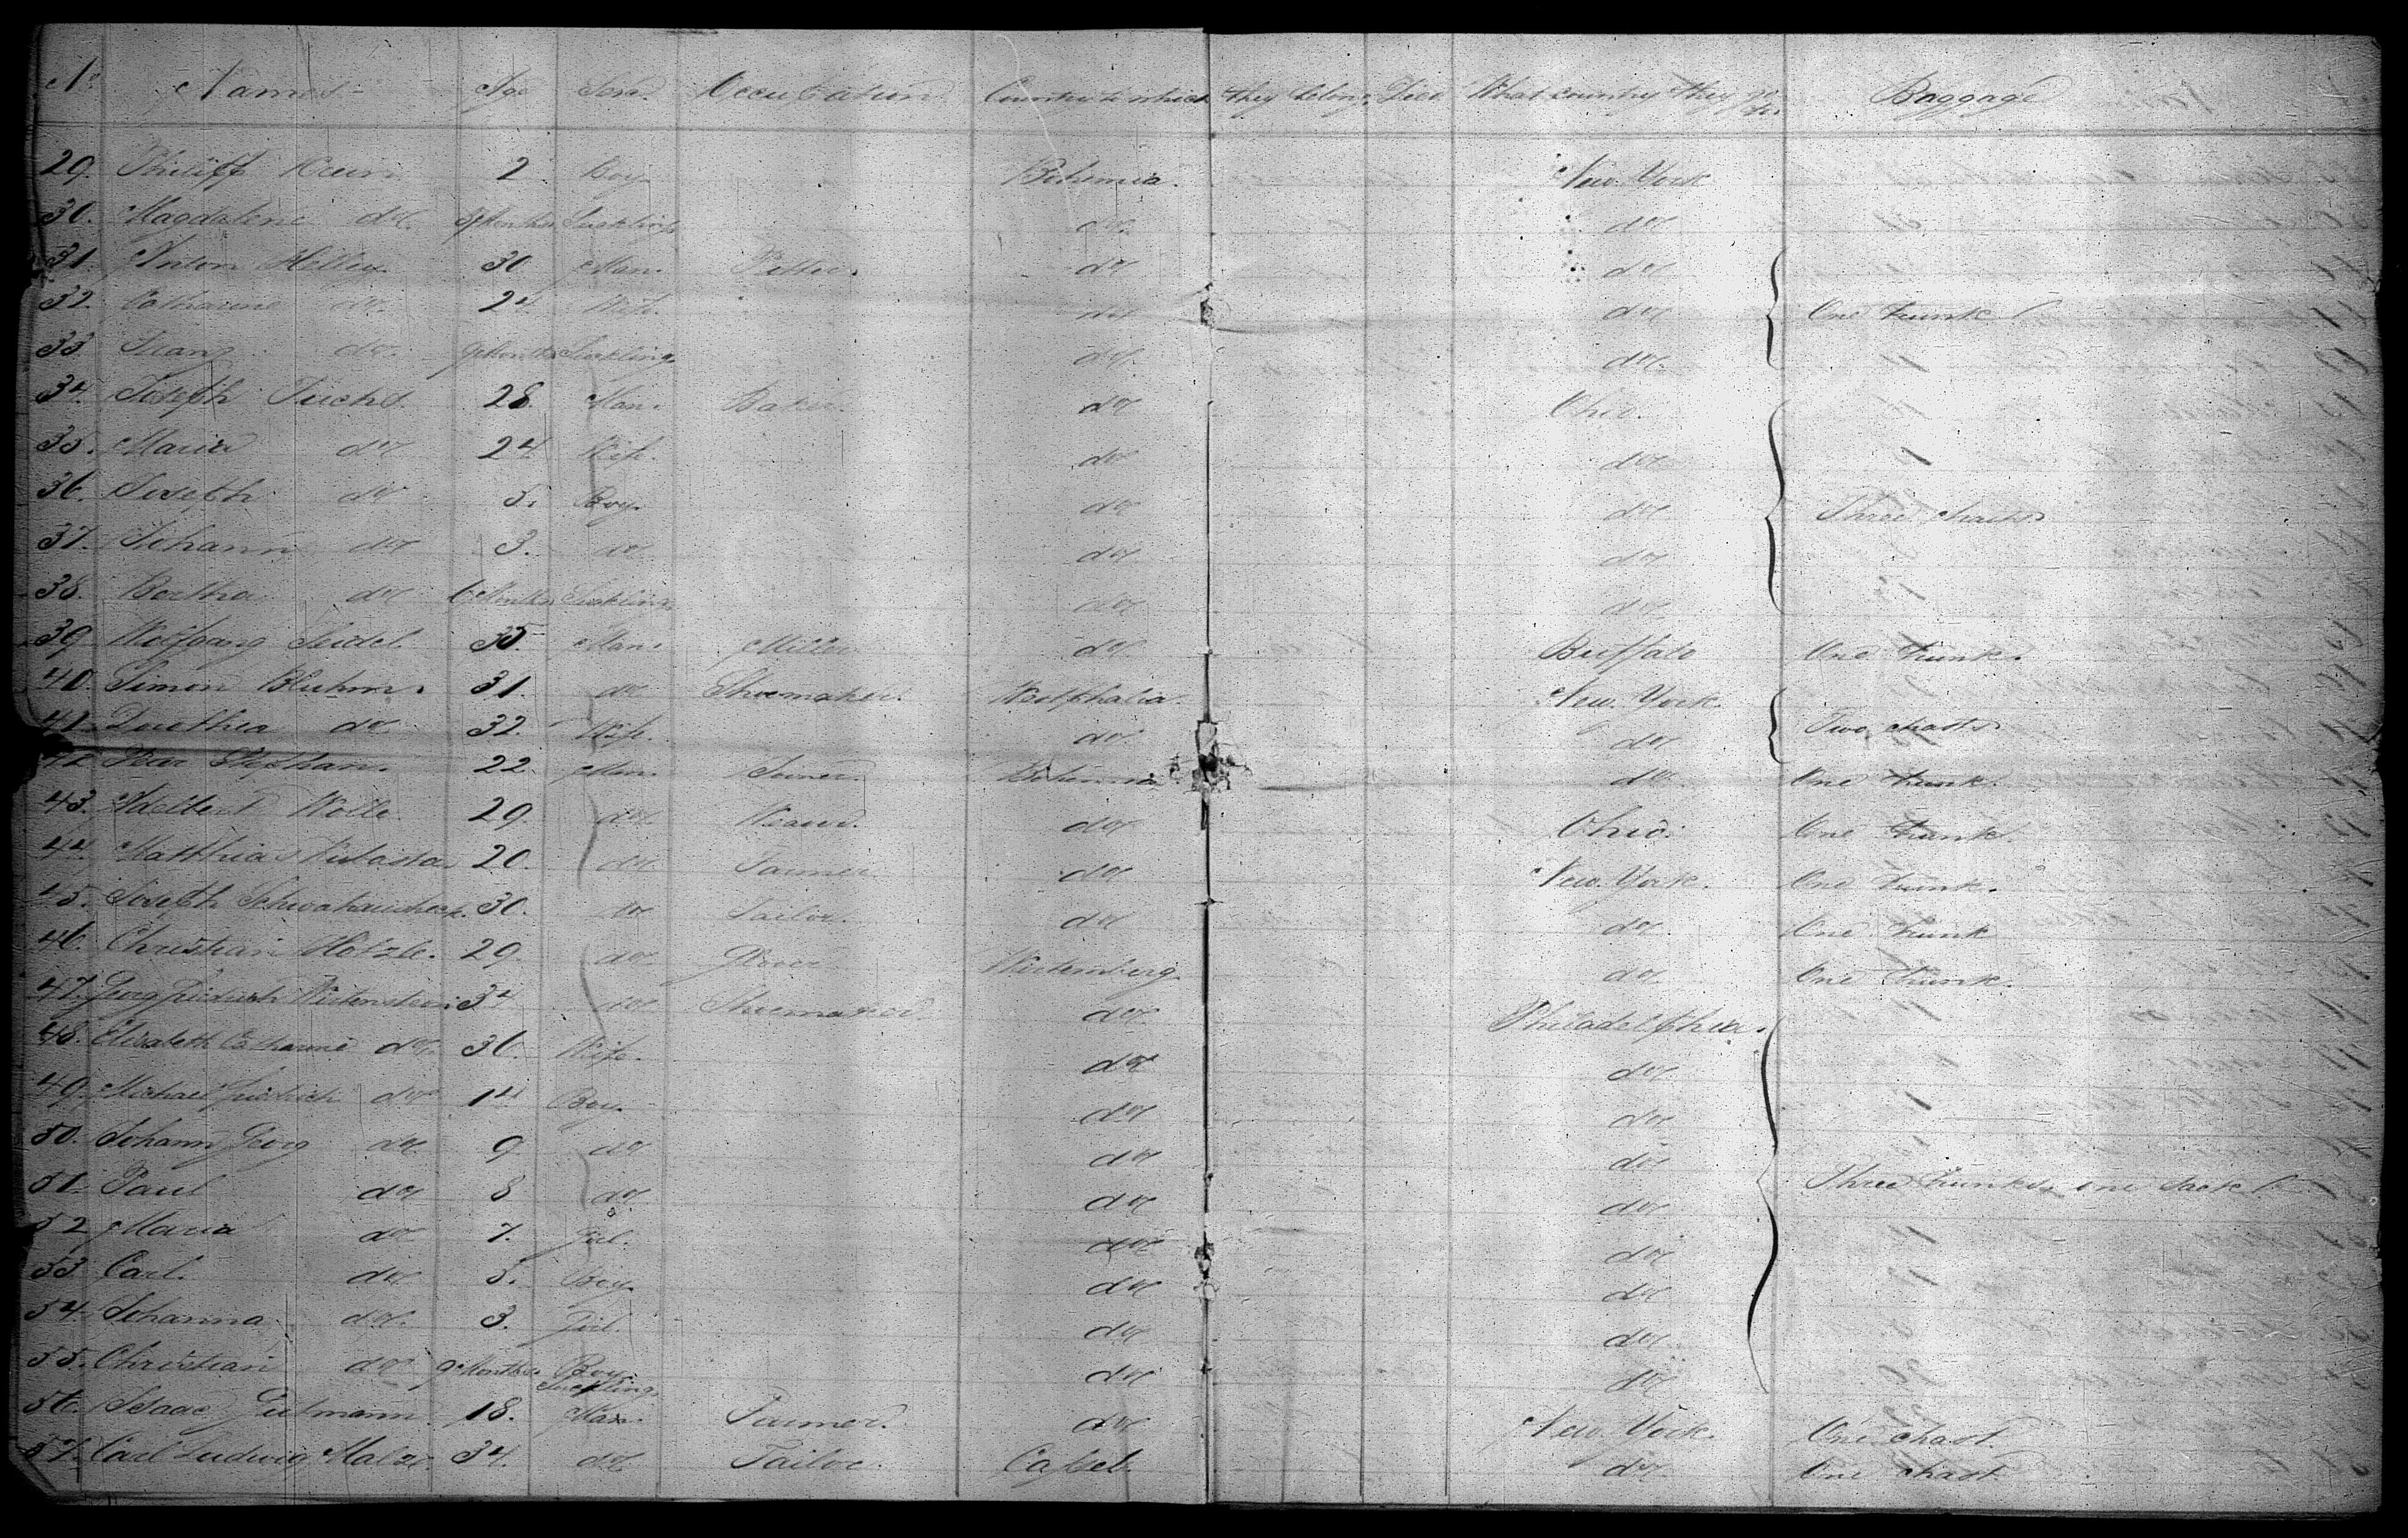 No Names Age Sex Occupation Country to which they belong Died What country they go to Baggage
29. Philipp 2 Boy Bohemia. New York
30. Magdalene do Months Suckling do do
31. Anton 30 Man. do do
32. Catharine do 24 Wife. do do One trunk
33. Franz do 9 Months Suckling do do
34. Joseph Fuchs 28. Man. Baker. do Ohio.
35. Maria do 24 Wife. do do
36. Joseph do 5. Boy. do do Three chasts
37. Johann do 3. do do do
38. Bertha do 6 Months Suckling do do
39. Wolfgang Seidel 35. Man. Miller do Buffalo One trunk.
40. Simon Bluhm. 31. do Shoemaker. Westphalia. New York.
41. Dorothea do 32. Wife. do do Two chasts
42. Peter Stephan. 22. Man. Bohemia do One trunk.
43. Adelbert Wolle. 29. do do Ohio. One trunk.
44. Matthias 20. do Farmer do New York. One trunk.
45. Joseph 30. do Tailor. do do One trunk
46. Christian Hotzle. 29. do Wirtemberg. do One trunk.
47. Georg Fridrich 34 do Shoemaker do Philadelphia.
48. Elisabeth Catharine do 36. Wife. do do
49. Michael Fridrich do 14 Boy. do do
50. Johann Georg do 9 do do do
51. Paul do 8 do do do Three trunks, one sack
52 Maria do 7. Girl. do do
53 Carl. do 5. Boy. do do
54. Johanna do 3. Girl. do do
55. Christian do 9 Months Boy. Suckling do do
56. Isaac Gutmann. 18. Man. Farmer. do New York. One chast.
57. Carl Ludwig 34. do Tailor. Cassel. do One chast